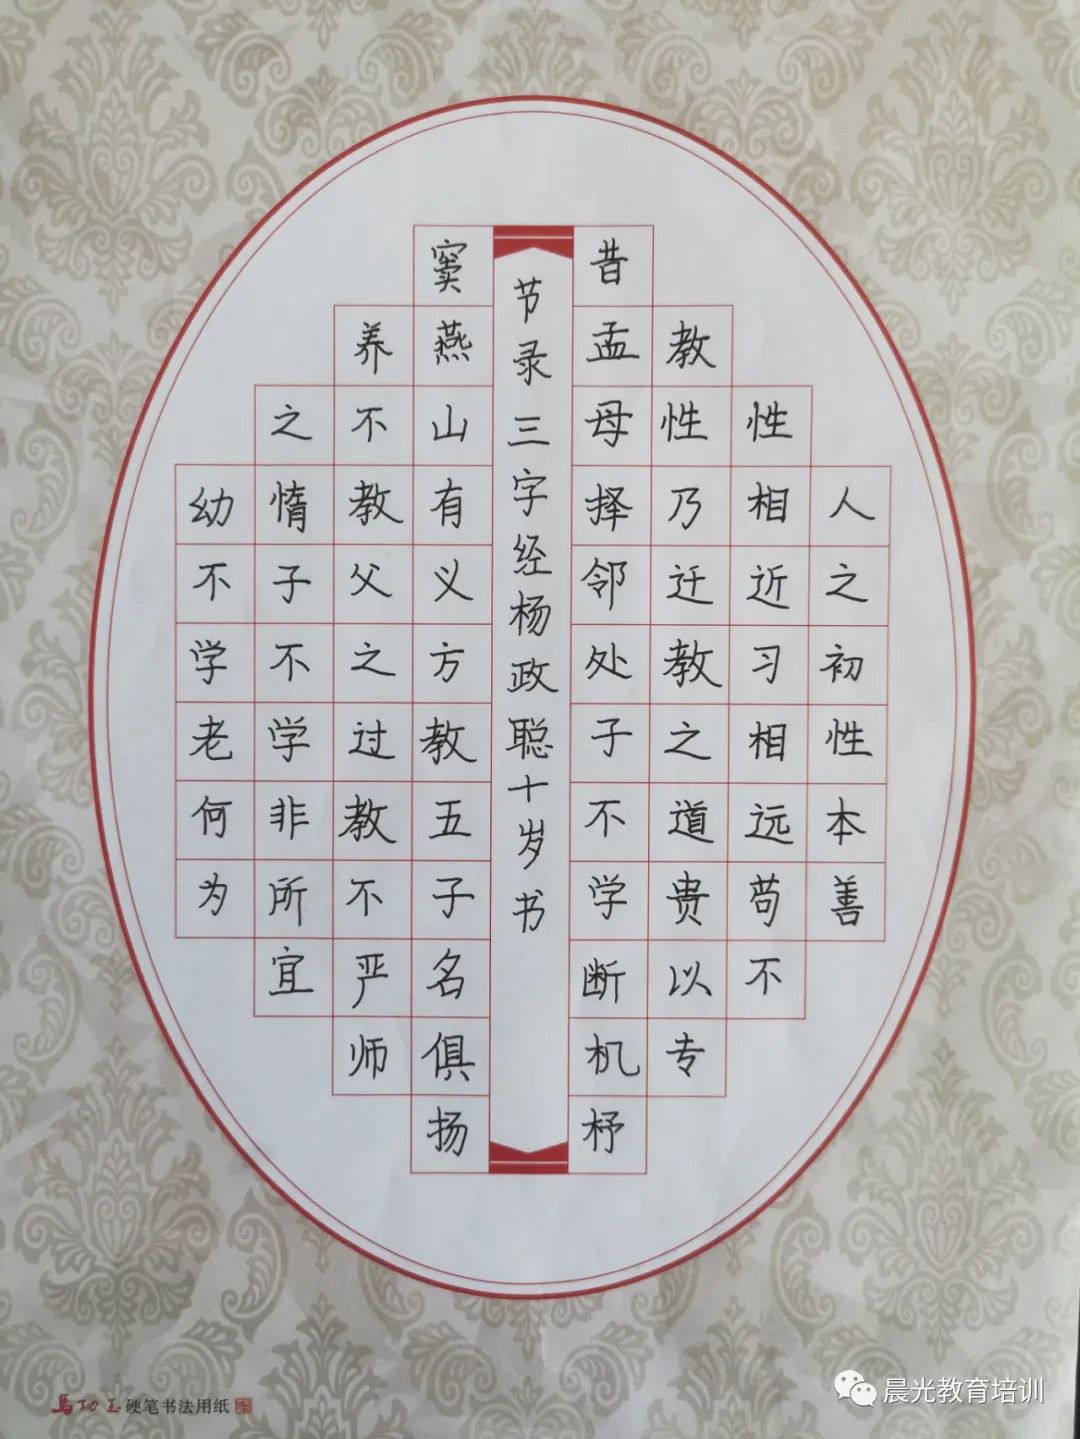 人之初性本善
性相近习相远苟不
教性乃迁教之道贵以专
昔孟母择邻处子不学断机杼
节录三字经杨政聪十岁书
窦燕山有义方教五子名俱扬
养不教父之过教不严师
之惰子不学非所宜
幼不学老何为
硬笔书法用纸
晨光教育培训